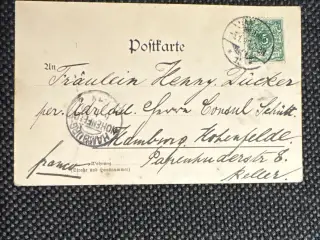 Postkarte
An
Fräulein Henny Zücker
per Adr. Herrn Consul Schütt
Hamburg Hohenfelde
Papenhuderstr 8.
Keller.
franco
Wohnung
(Straße und Hausnummer)
HAMBURG
HOHENFELDE